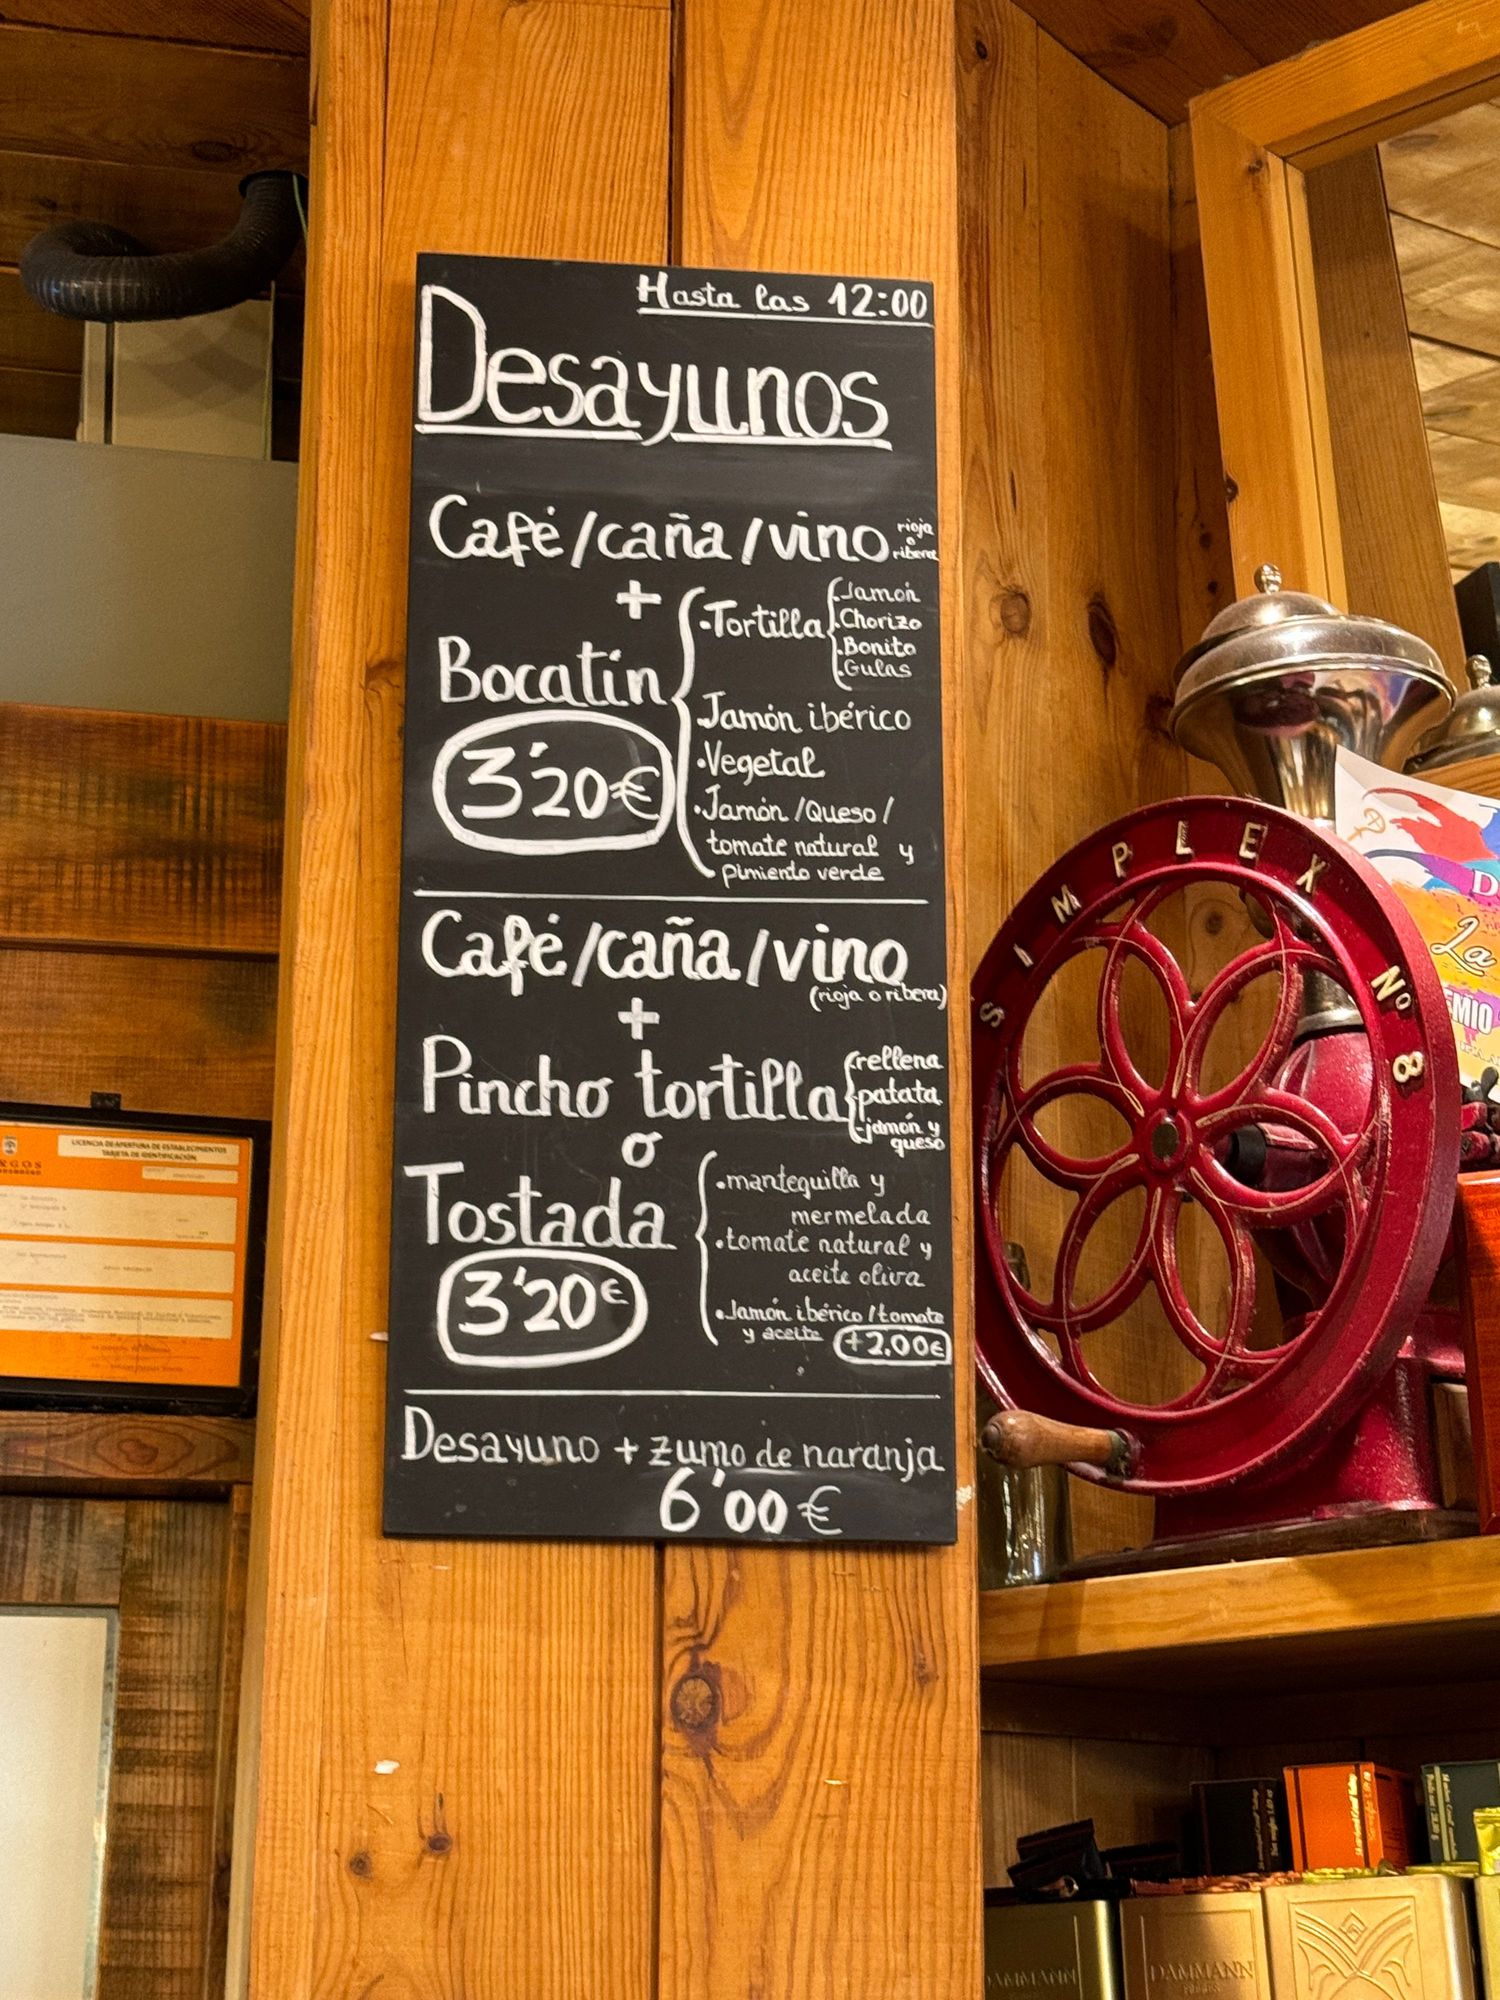 Hasta las 12:00
Desayunos
Café/caña/vino rioja o ribera
+
Bocatín
3'20€
·Tortilla
·Jamón
·Chorizo
·Bonito
·Gulas
·Jamón ibérico
·Vegetal
·Jamón/Queso/
tomate natural y
pimiento verde
Café/caña/vino
(rioja o ribera)
+
Pincho tortilla
-rellena
-patata
-jamón y
queso
o
Tostada
3'20€
·mantequilla y
mermelada
·tomate natural y
aceite oliva
·Jamón ibérico/tomate
y aceite +2.00€
Desayuno + zumo de naranja
6'00€
SIMPLEX Nº 8
La
LICENCIA DE APERTURA DE ESTABLECIMIENTOS
TARJETA DE IDENTIFICACIÓN
DAMMANN
DAMMANN